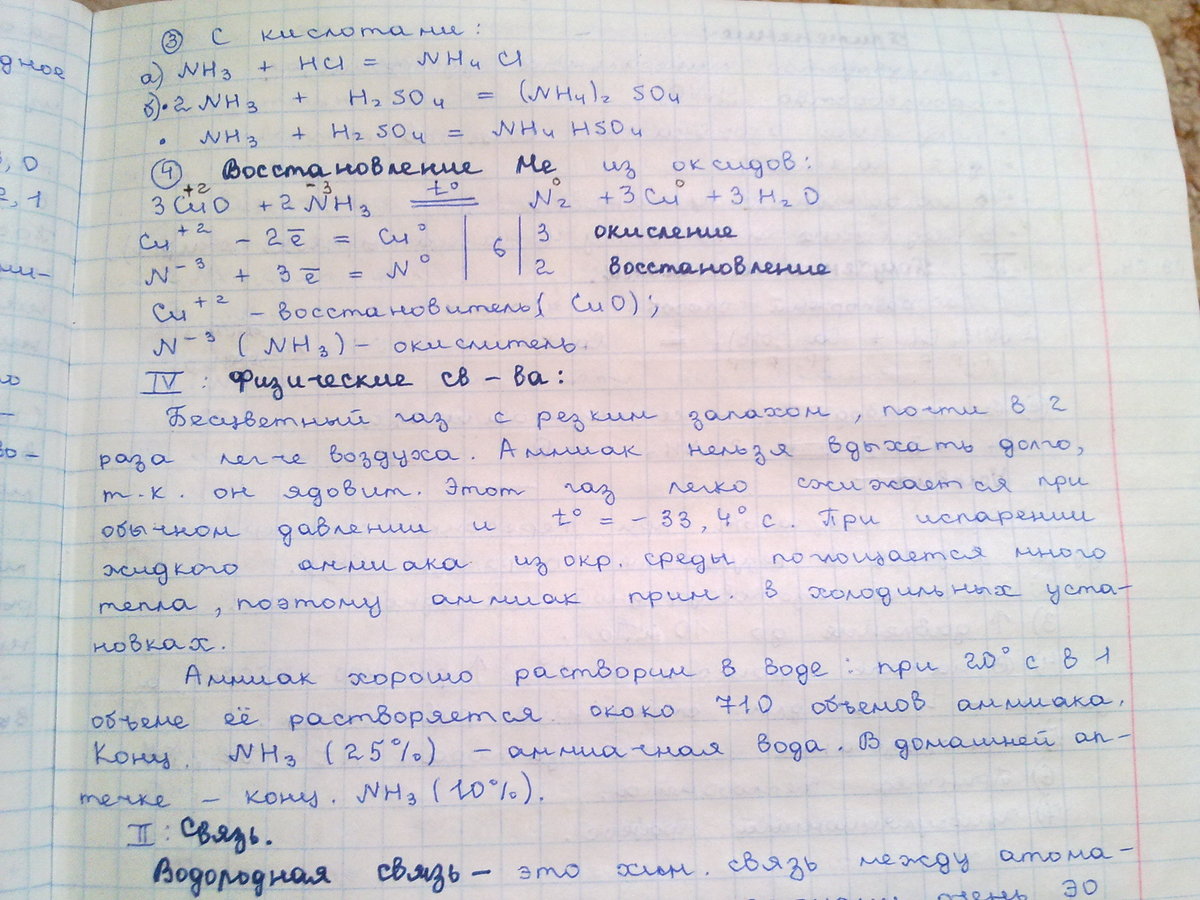 ③ С кислотами:
а) NH₃ + HCl = NH₄Cl
б) • 2NH₃ + H₂SO₄ = (NH₄)₂SO₄
• NH₃ + H₂SO₄ = NH₄HSO₄
④ Восстановление Ме из оксидов:
3Cu⁺²O + 2N⁻³H₃ =t°= N₂⁰ + 3Cu⁰ + 3H₂O
Cu⁺² - 2ē = Cu⁰ | 6 | 3 окисление
N⁻³ + 3ē = N⁰ | | 2 восстановление
Cu⁺² - восстановитель (CuO);
N⁻³ (NH₃) - окислитель.
IV: Физические св-ва:
Бесцветный газ с резким запахом, почти в 2
раза легче воздуха. Аммиак нельзя вдыхать долго,
т.к. он ядовит. Этот газ легко сжижается при
обычном давлении и t° = -33,4°с. При испарении
жидкого аммиака из окр. среды поглощается много
тепла, поэтому аммиак прим. в холодильных уста-
новках.
Аммиак хорошо растворим в воде: при 20°с в 1
объеме её растворяется около 710 объемов аммиака.
Конц. NH₃ (25%) - аммиачная вода. В домашней ап-
течке - конц. NH₃ (10%).
II: Связь.
Водородная связь - это хим. связь между атома-
ЭО
дное
0
1